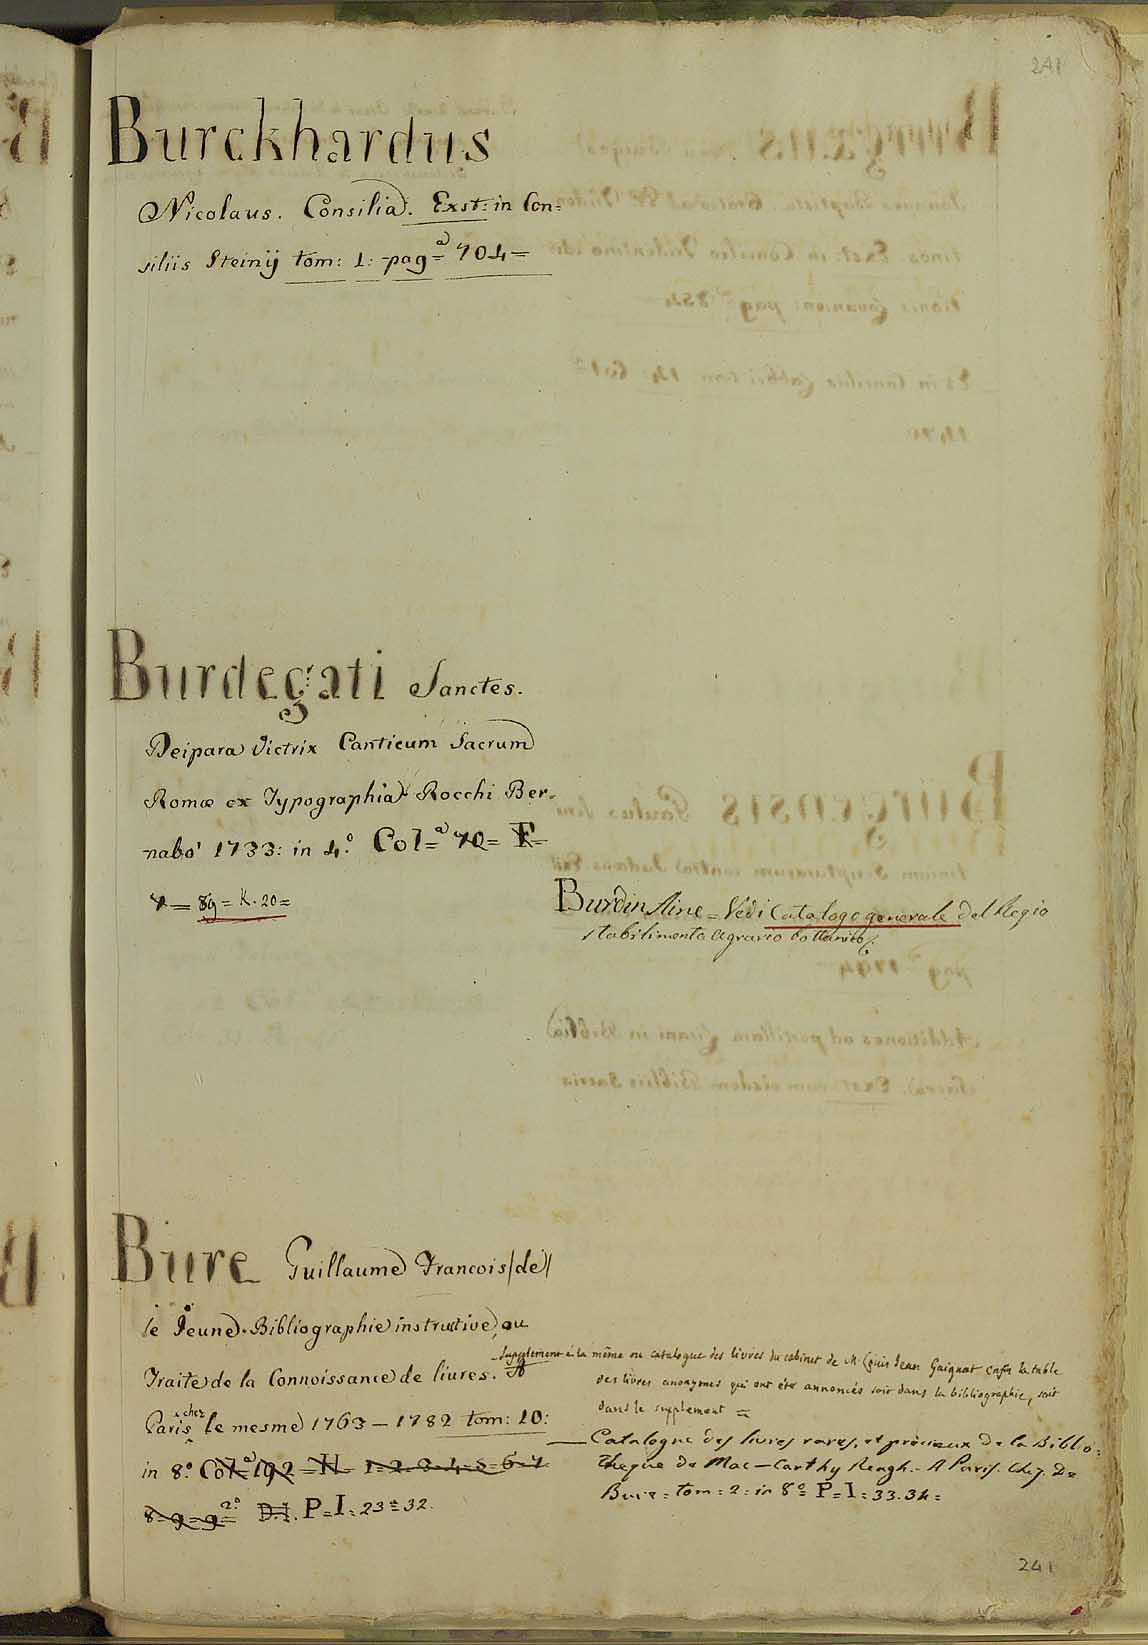 241
Burckhardus
Nicolaus. Consilia. Exst: in Con=
siliis Steinij tom: 1: pagª= 704=
Burdegati Sanctes.
Deipara Victrix Canticum Sacrum
Romæ ex Typographia Rocchi Ber=
nabo' 1733: in 4.º Colª= 70= F=
7= 89= K. 20=
Burdin Aine = Vedi Catalogo generale del Regio
stabilimento agrario bottanico.
Bure Guillaume Francois /de/
le Jeune. Bibliographie instructive, ou
Traite de la Connoissance de livres. A
Paris chez le mesme 1763 — 1782 tom: 10:
in 8.º Colª= 192= H= 1=2=3=4=5=6=7
8=9=9=2º D.I. P=I=23=32.
Supplement à la même ou catalogue des livres du cabinet de M. Louis Jean Gaignat enfin la table
des livres anonymes qui ont été annoncés soit dans la bibliographie, soit
dans le supplement =
— Catalogue des livres rares, et précieux de la Biblio=
theque de Mac-Carthy Reagh. - A Paris. Chez. De
Bure = tom = 2 = in 8º P=I=33.34=
241